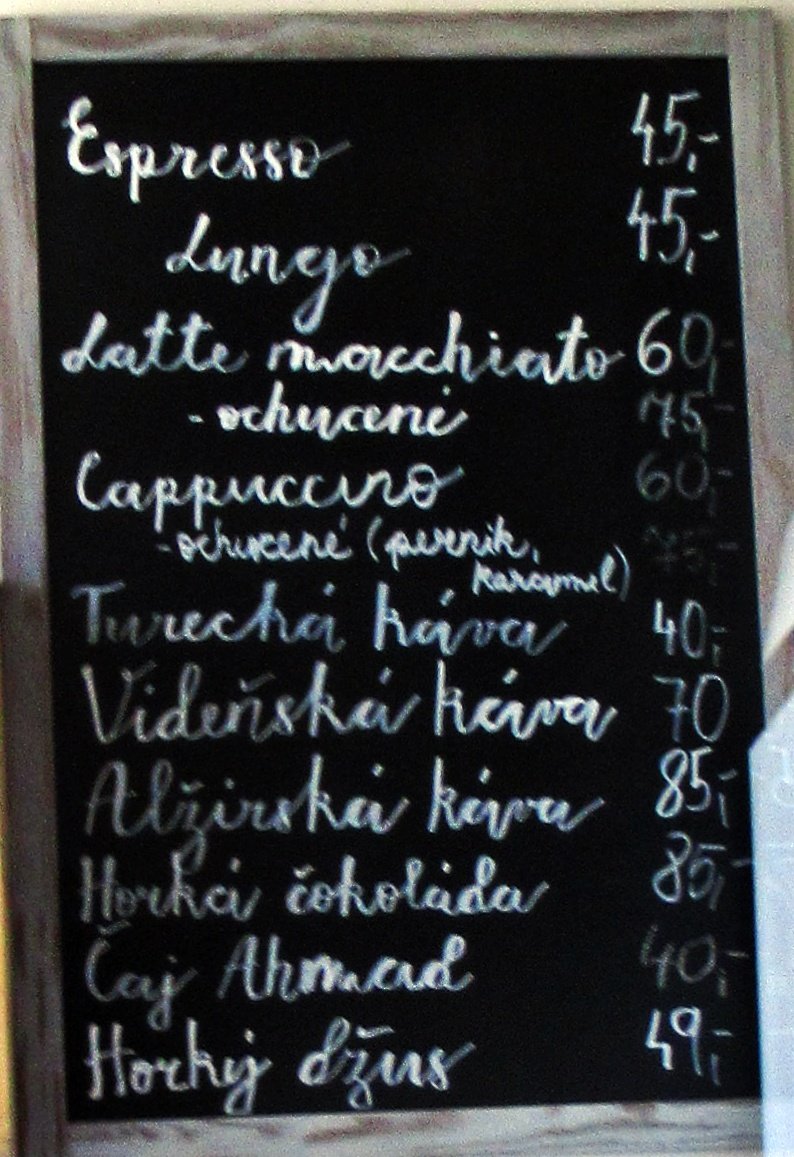 Espresso 45,-
Lungo 45,-
Latte macchiato 60,-
-ochucené 75,-
Cappuccino 60,-
-ochucené (perník, 75,-
karamel)
Turecká káva 40,-
Vídeňská káva 70
Alžírská káva 85,-
Horká čokoláda 85,-
Čaj Ahmad 40,-
Horký džus 49,-